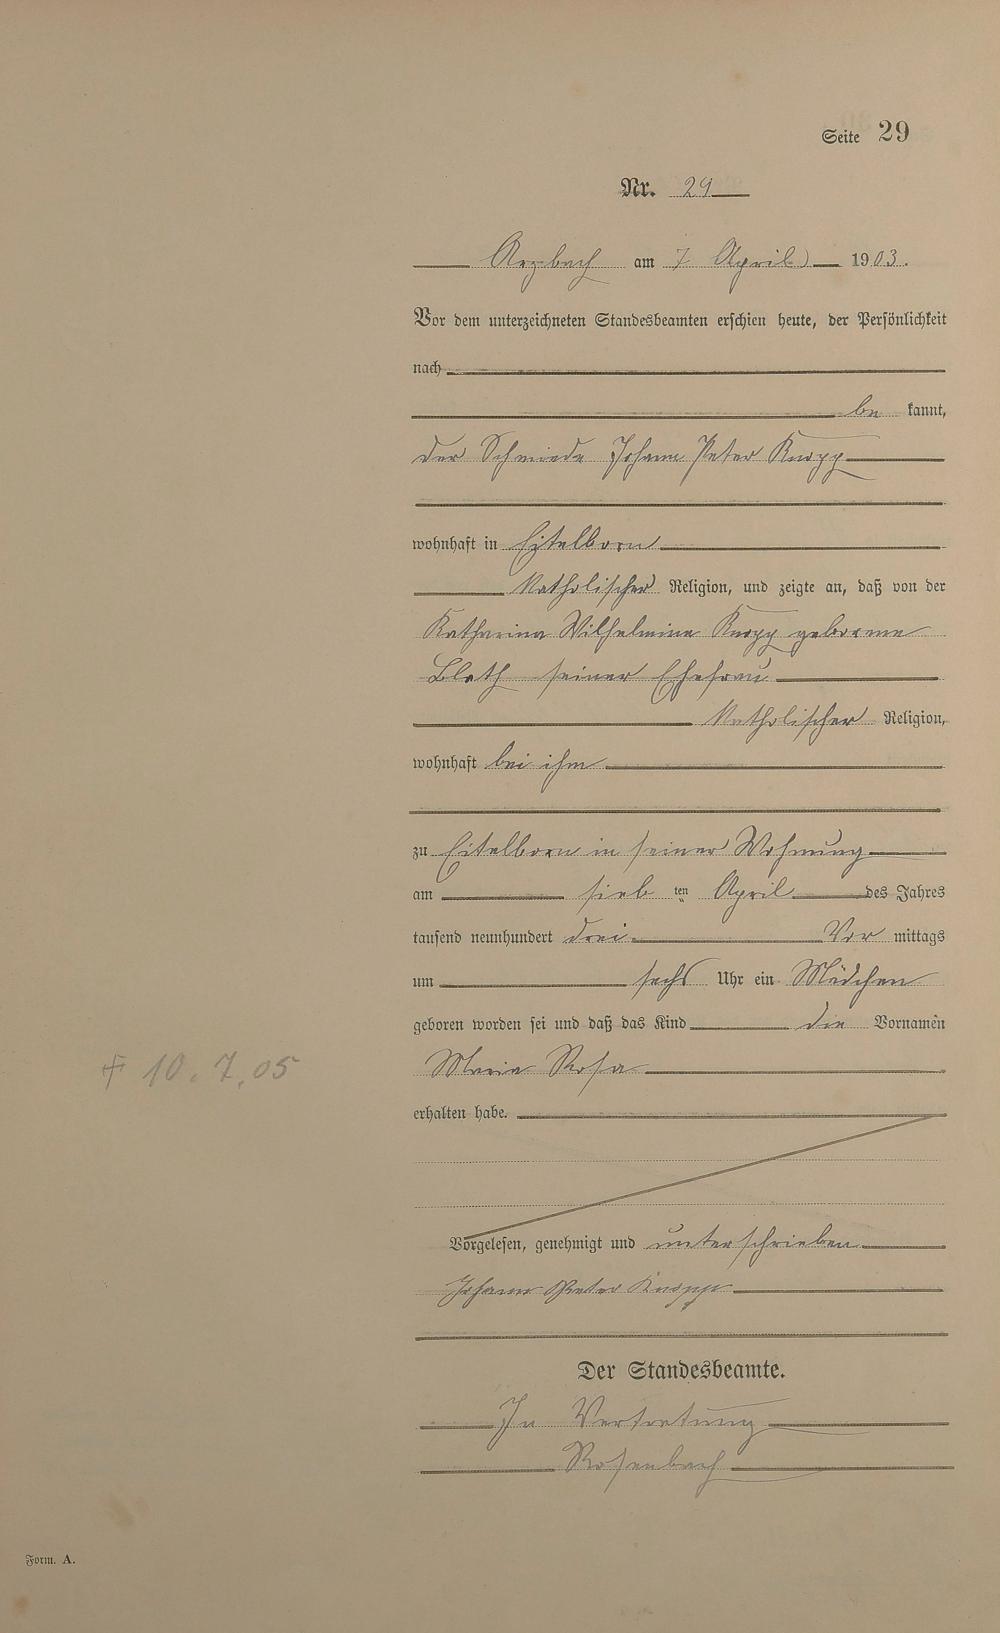 Seite 29
Nr. 29
Arzbach am 7 April 1903.
Vor dem unterzeichneten Standesbeamten erschien heute, der Persönlichkeit
nach
be kannt,
der Schmiede Johann Peter Knopp
wohnhaft in Eitelborn
katholischer Religion, und zeigte an, daß von der
Katharina Wilhelmine Knopp geborene
seiner Ehefrau
katholischer Religion,
wohnhaft bei ihm
zu Eitelborn in seiner Wohnung
am sieb ten April des Jahres
tausend neunhundert drei Vor mittags
um sechs Uhr ein Mädchen
geboren worden sei und daß das Kind die Vornamen
† 10.7.05
Maria Rosa
erhalten habe.
Vorgelesen, genehmigt und unterschrieben
Johann Peter Knopp
Der Standesbeamte.
In Vertretung
Rosenbach
Form. A.